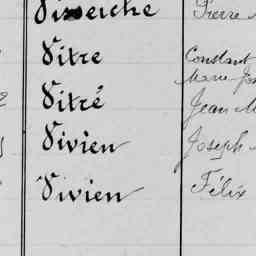 Pierre
Vitre Constant
Marie
Vitré Jean M
Vivien Joseph
Vivien Félix